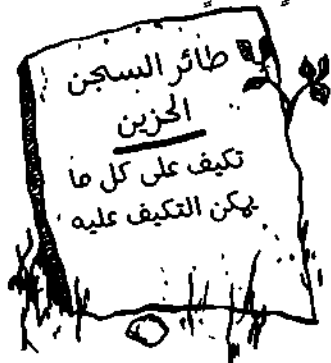 طائر السجن
الحزين
تكيف على كل ما
يمكن التكيف عليه